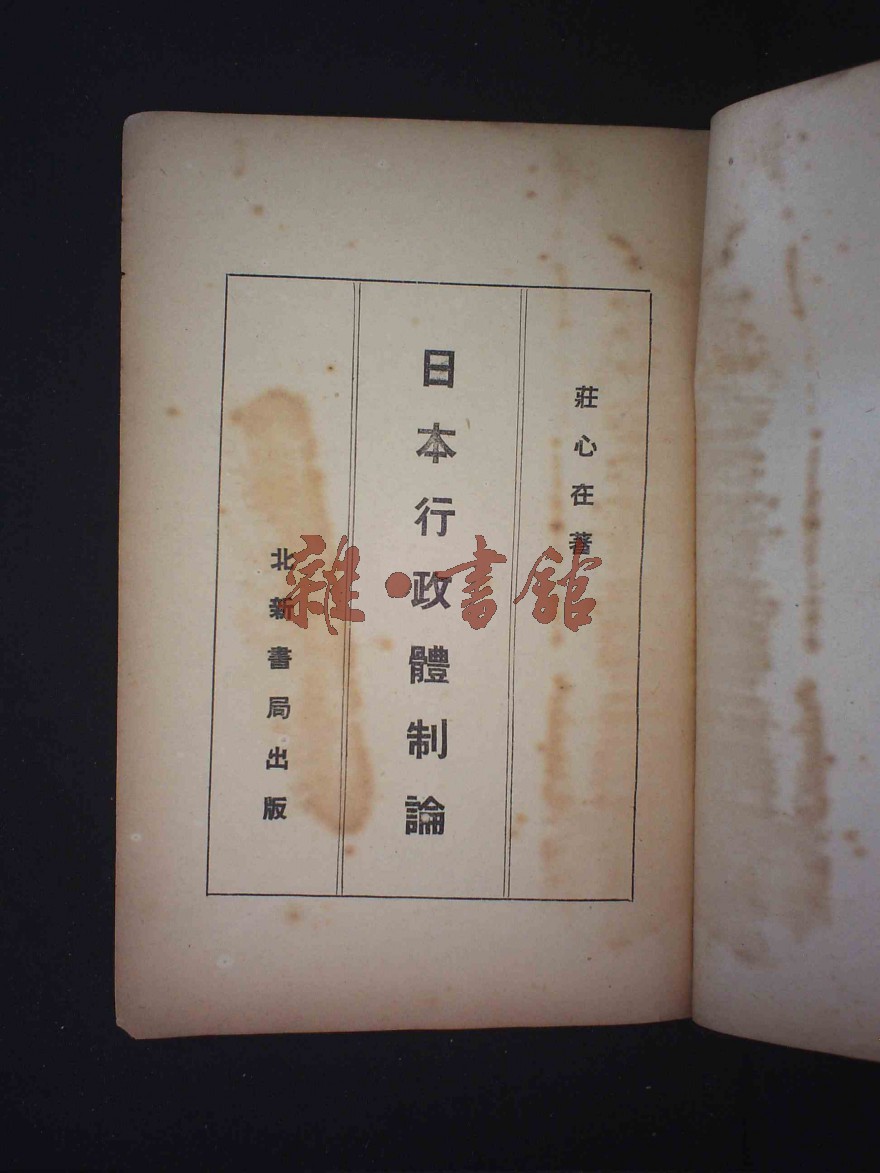 莊心在著
日本行政體制論
北新書局出版
雜·書館